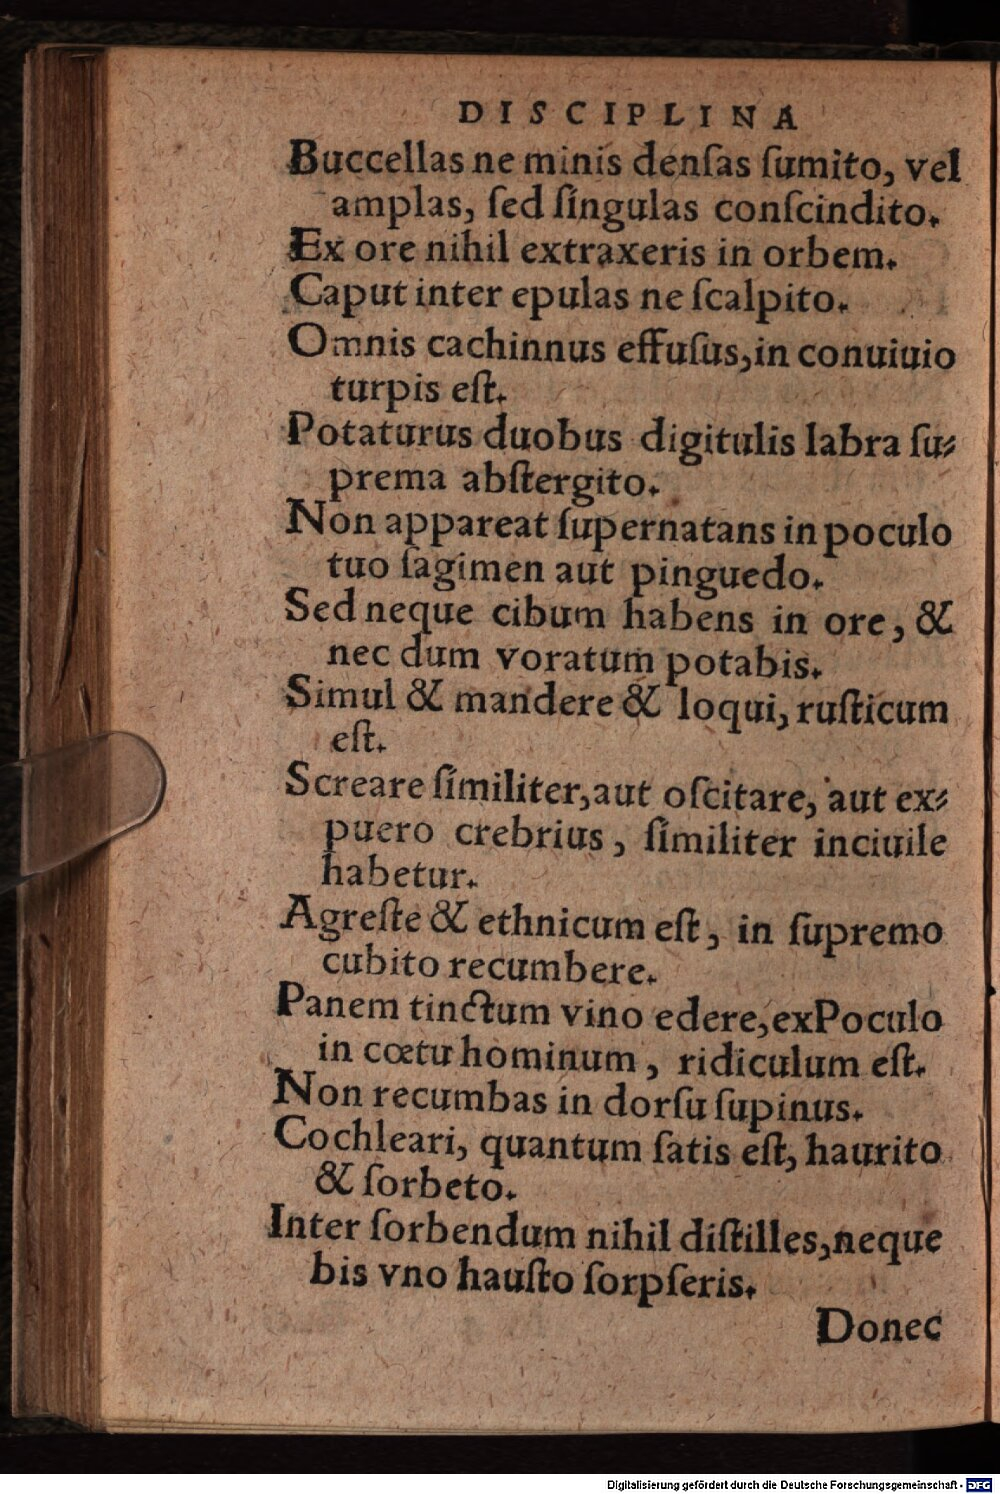 DISCIPLINA
Buccellas ne minis denſas ſumito, vel
amplas, ſed ſingulas conſcindito.
Ex ore nihil extraxeris in orbem.
Caput inter epulas ne ſcalpito.
Omnis cachinnus effuſus,in conuiuio
turpis eſt.
Potaturus duobus digitulis labra ſu⸗
prema abſtergito.
Non appareat ſupernatans in poculo
tuo ſagimen aut pinguedo.
Sed neque cibum habens in ore, &
nec dum voratum potabis.
Simul & mandere & loqui, ruſticum
eſt.
Screare ſimiliter,aut oſcitare, aut ex⸗
puero crebrius, ſimiliter inciuile
habetur.
Agreſte & ethnicum eſt, in ſupremo
cubito recumbere.
Panem tinctum vino edere,exPoculo
in cœtu hominum, ridiculum eſt.
Non recumbas in dorſu ſupinus.
Cochleari, quantum ſatis eſt, haurito
& ſorbeto.
Inter ſorbendum nihil diſtilles,neque
bis vno hauſto ſorpſeris.
Donec
Digitalisierung gefördert durch die Deutsche Forschungsgemeinschaft - DFG